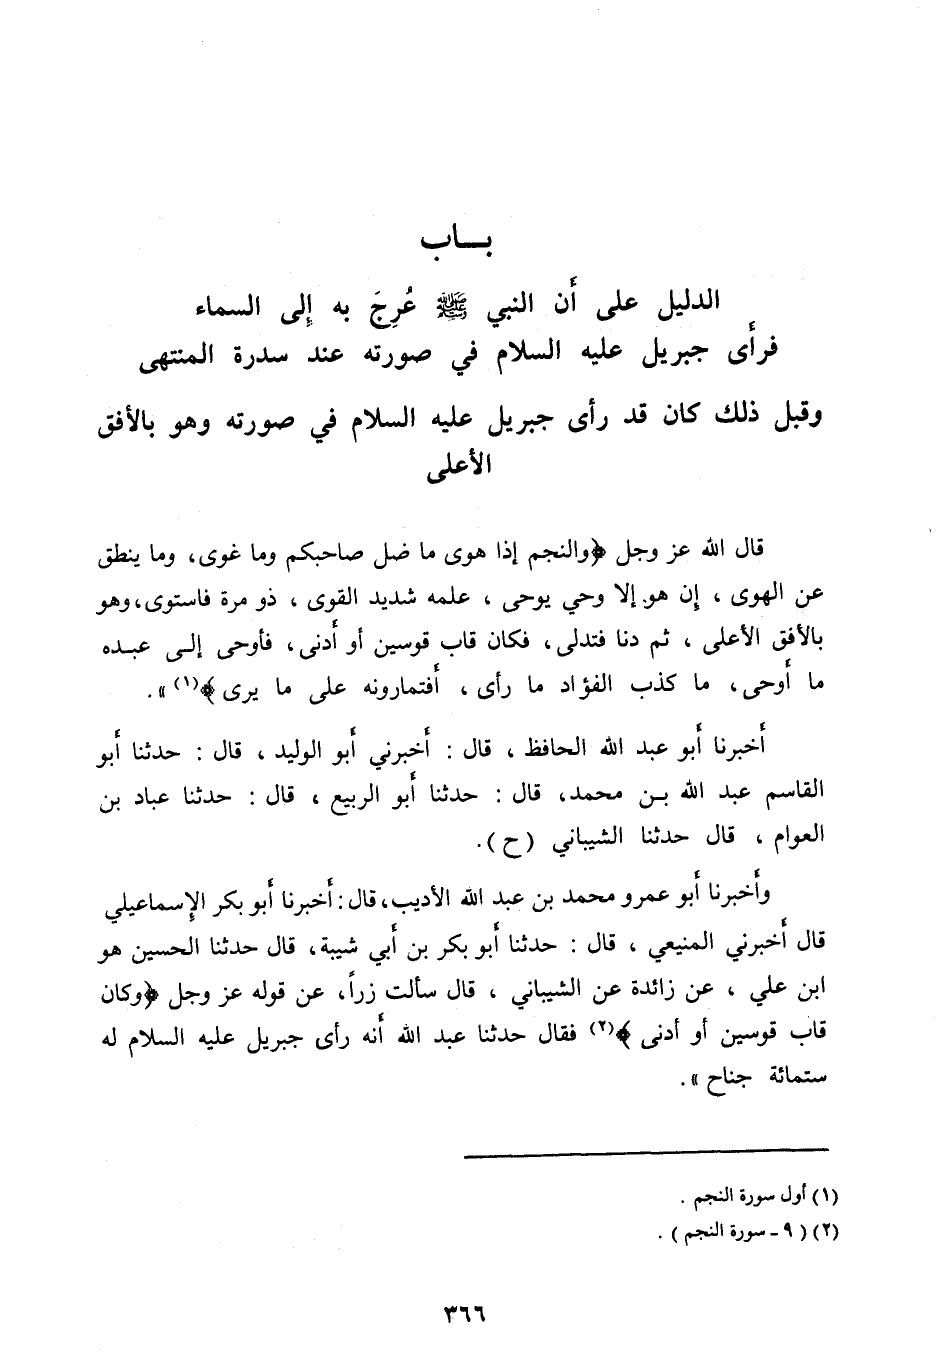 بـــاب
الدليل على أن النبي ﷺ عُرِجَ به إلى السماء
فرأى جبريل عليه السلام في صورته عند سدرة المنتهى
وقبل ذلك كان قد رأى جبريل عليه السلام في صورته وهو بالأفق
الأعلى
قال الله عز وجل ﴿والنجم إذا هوى ما ضل صاحبكم وما غوى، وما ينطق
عن الهوى ، إن هو إلا وحي يوحى ، علمه شديد القوى ، ذو مرة فاستوى، وهو
بالأفق الأعلى ، ثم دنا فتدلى ، فكان قاب قوسين أو أدنى ، فأوحى إلـى عبـده
ما أوحى، ما كذب الفؤاد ما رأى ، أفتمارونه على ما يرى ﴾(١)».
أخبرنا أبو عبد الله الحافظ ، قال : أخبرني أبو الوليد ، قال : حدثنا أبو
القاسم عبد الله بـن محمد، قال : حدثنا أبو الربيع ، قال : حدثنا عباد بن
العوام ، قال حدثنا الشيباني (ح).
وأخبرنا أبو عمرو محمد بن عبد الله الأديب، قال : أخبرنا أبو بكر الإسماعيلي
قال أخبرني المنيعي ، قال : حدثنا أبو بكر بن أبي شيبة، قال حدثنا الحسين هو
ابن علي ، عن زائدة عن الشيباني ، قال سألت زراً، عن قوله عز وجل ﴿وكان
قاب قوسين أو أدنى ﴾(٢) فقال حدثنا عبد الله أنه رأى جبريل عليه السلام له
ستمائة جناح ».
(١) أول سورة النجم .
(٢) ( ٩ - سورة النجم ) .
٣٦٦